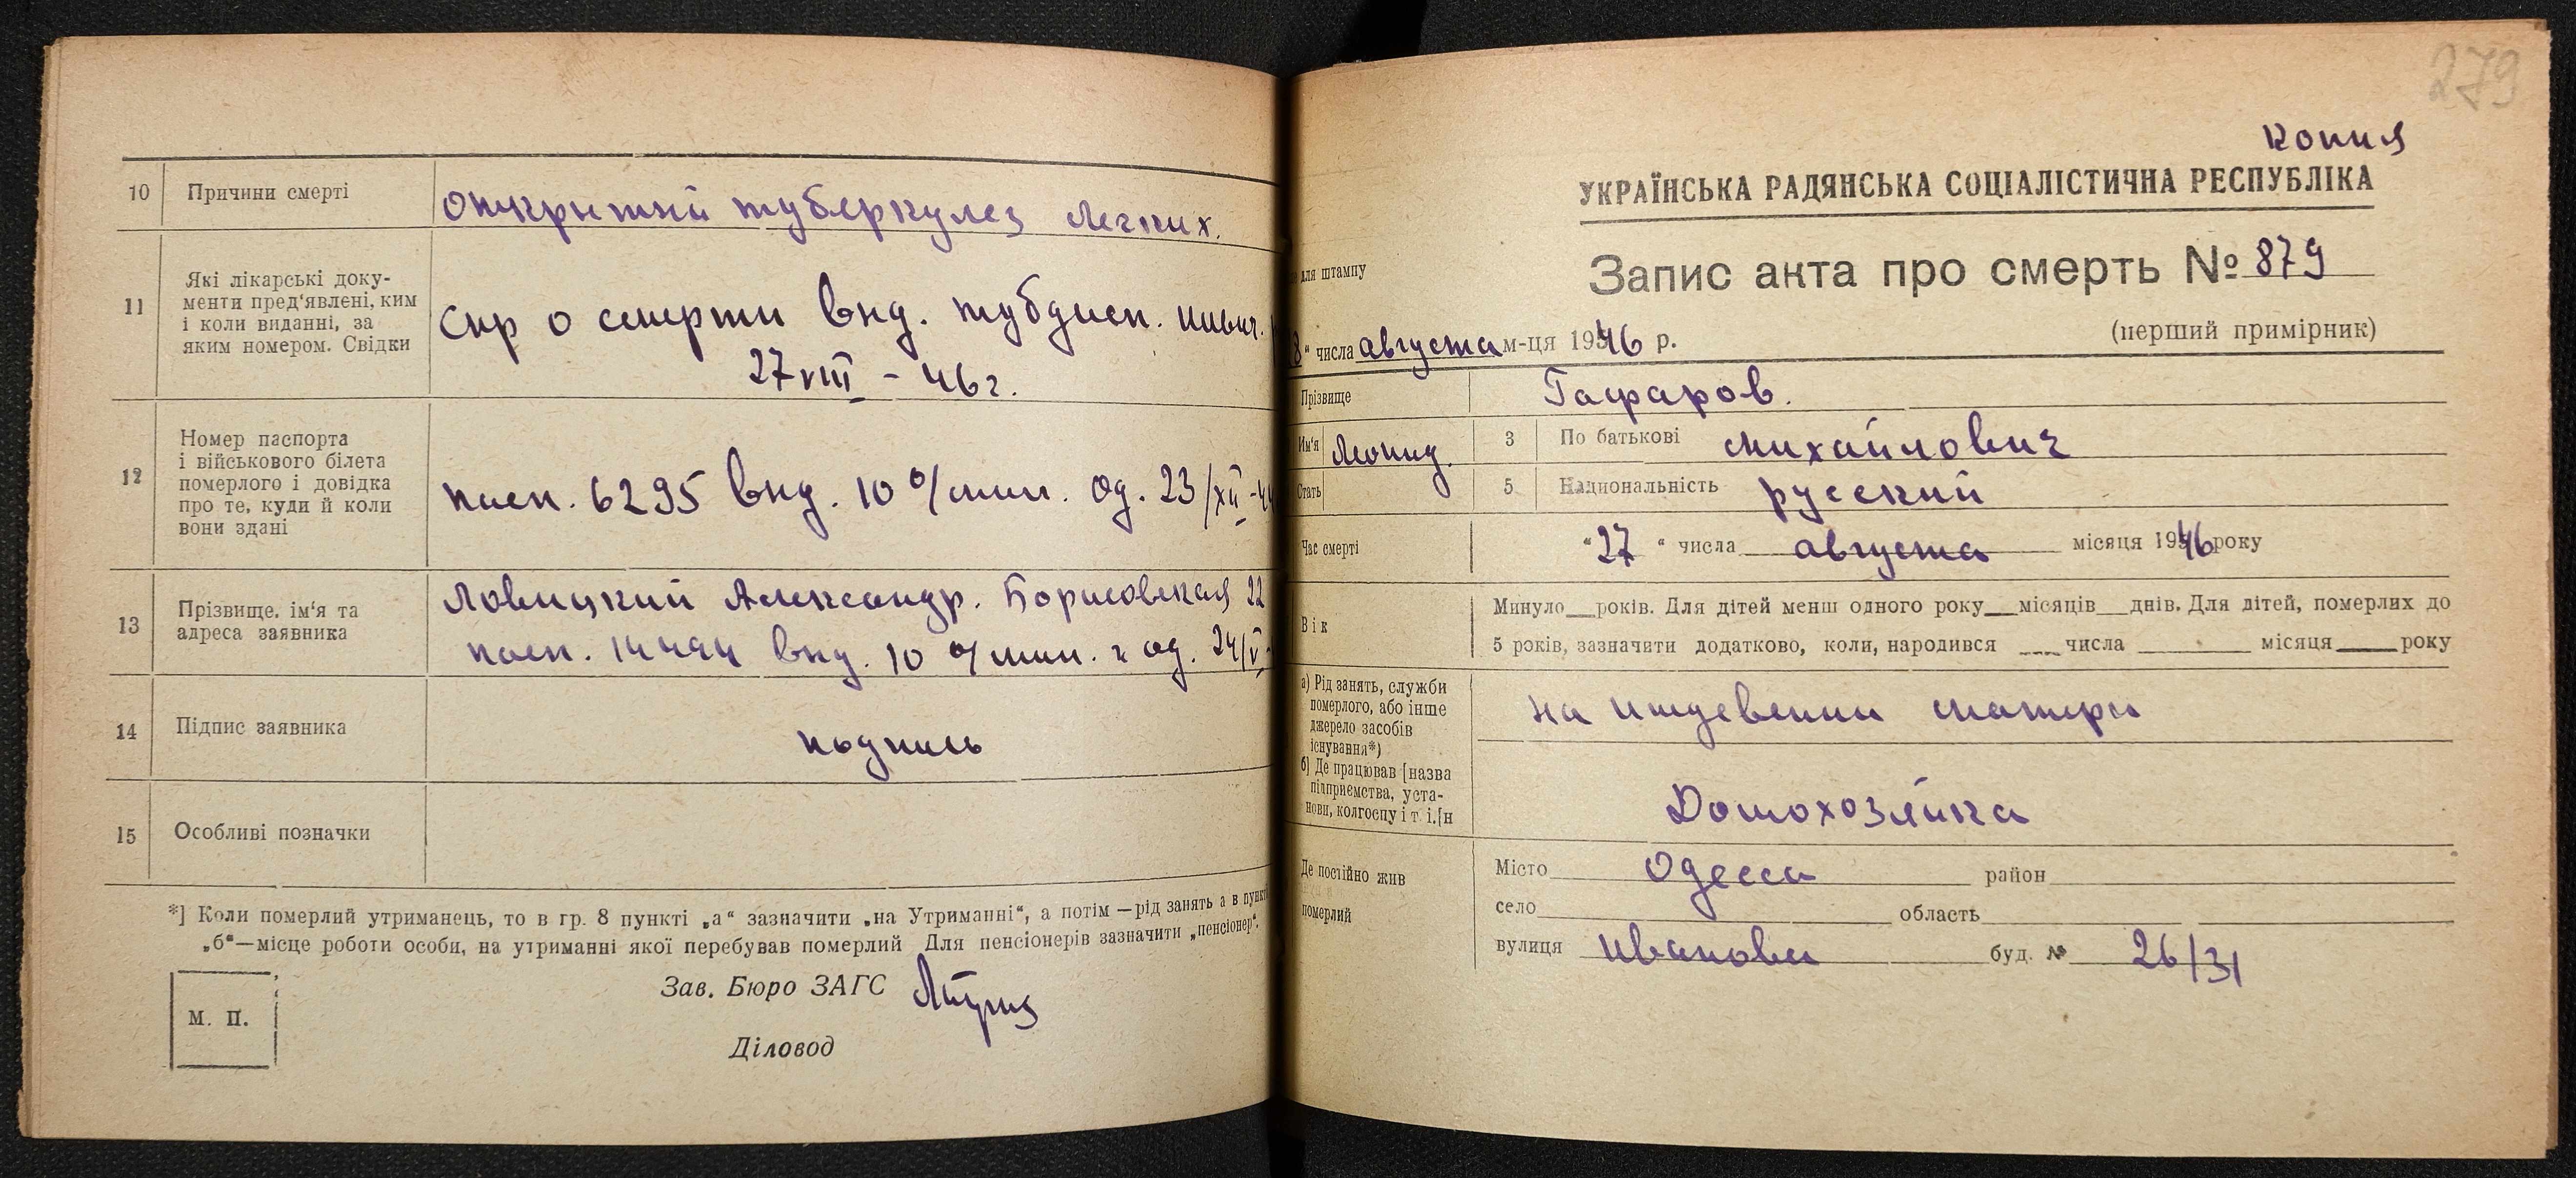 10 Причини смерті
открытый туберкулез легких.
11 Які лікарські доку-
менти пред'явлені, ким
і коли виданні, за
яким номером. Свідки
спр о смерти выд. тубдисп.
27 VIII - 46 г.
12 Номер паспорта
і військового білета
померлого і довідка
про те, куди й коли
вони здані
пасп. 6295 выд. 10 о/мил. Од. 23/XII-44
13 Прізвище, ім'я та
адреса заявника
Ловицкий Александр. Борисовская 22
пасп. 14494 выд. 10 о/мил. г Од. 24/V-
14 Підпис заявника
подпись
15 Особливі позначки
*] Коли померлий утриманець, то в гр. 8 пункті „а“ зазначити „на Утриманні“, а потім —рід занять а в пункті
„б“—місце роботи особи, на утриманні якої перебував померлий Для пенсіонерів зазначити „пенсіонер“.
М. П.
Зав. Бюро ЗАГС
Діловод
279
копия
УКРАЇНСЬКА РАДЯНСЬКА СОЦІАЛІСТИЧНА РЕСПУБЛІКА
для штампу
Запис акта про смерть № 879
8 “ числа августа м-ця 1946 р.
(перший примірник)
Прізвище Гафаров.
Им'я Леонид. 3 По батькові Михайлович
Стать 5 Національність русский
Час смерті “27 “ числа августа місяця 1946 року
Вік
Минуло__років. Для дітей менш одного року__місяців__днів. Для дітей, померлих до
5 років, зазначити додатково, коли, народився ___ числа ______ місяця____року
а) Рід занять, служби
померлого, або інше
джерело засобів
існування*)
на иждевении матери
б] Де працював [назва
підприємства, уста-
нови, колгоспу і т. і.[н
Домохозяйка
Де постійно жив
померлий
Місто Одесса район
село область
вулиця Иванова буд. № 26/31